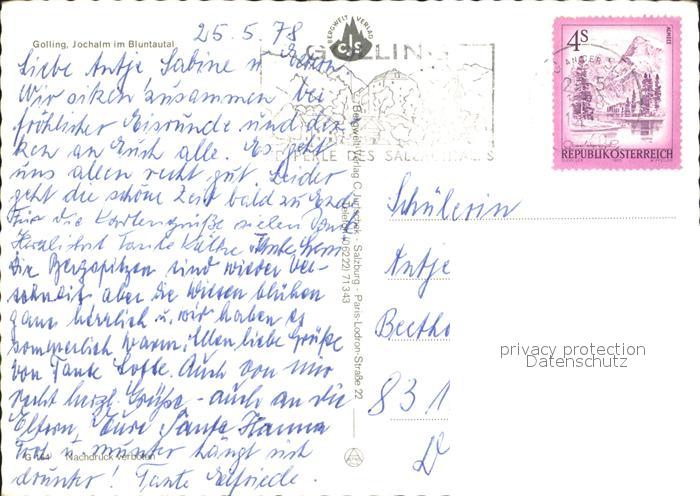 25.5.78
Golling, Jochalm im Bluntautal
Liebe Antje, Sabine u.
Wir sitzen zusammen bei
fröhlicher Eisrunde und den-
ken an Euch alle. Es geht
uns allen recht gut. Leider
geht die schöne Zeit bald zu Ende
Für die Kartengrüße vielen Dank
Herzlichst Tante Käthe Tante
Die Bergspitzen sind wieder ver-
schneit aber die Wiesen blühen
ganz herrlich u. wir haben es
sommerlich warm. Allen liebe Grüße
von Tante Lotte. Auch von mir
recht herzl. Grüße - auch an die
Eltern, Eure Tante Hanna
u. munter hängt sich
drunter! Tante Elfriede.
G 164 Nachdruck verboten
BERGWELT VERLAG
cJs
Bergwelt-Verlag C. Jurischek - Salzburg - Paris-Lodron-Straße 22
Telefon (0 62 22) 71 3 43
GOLLING
PERLE DES SALZACHTALES
4s
ALMSEE
REPUBLIK ÖSTERREICH
Schülerin
Antje
Beetho
83 1
D
privacy protection
Datenschutz